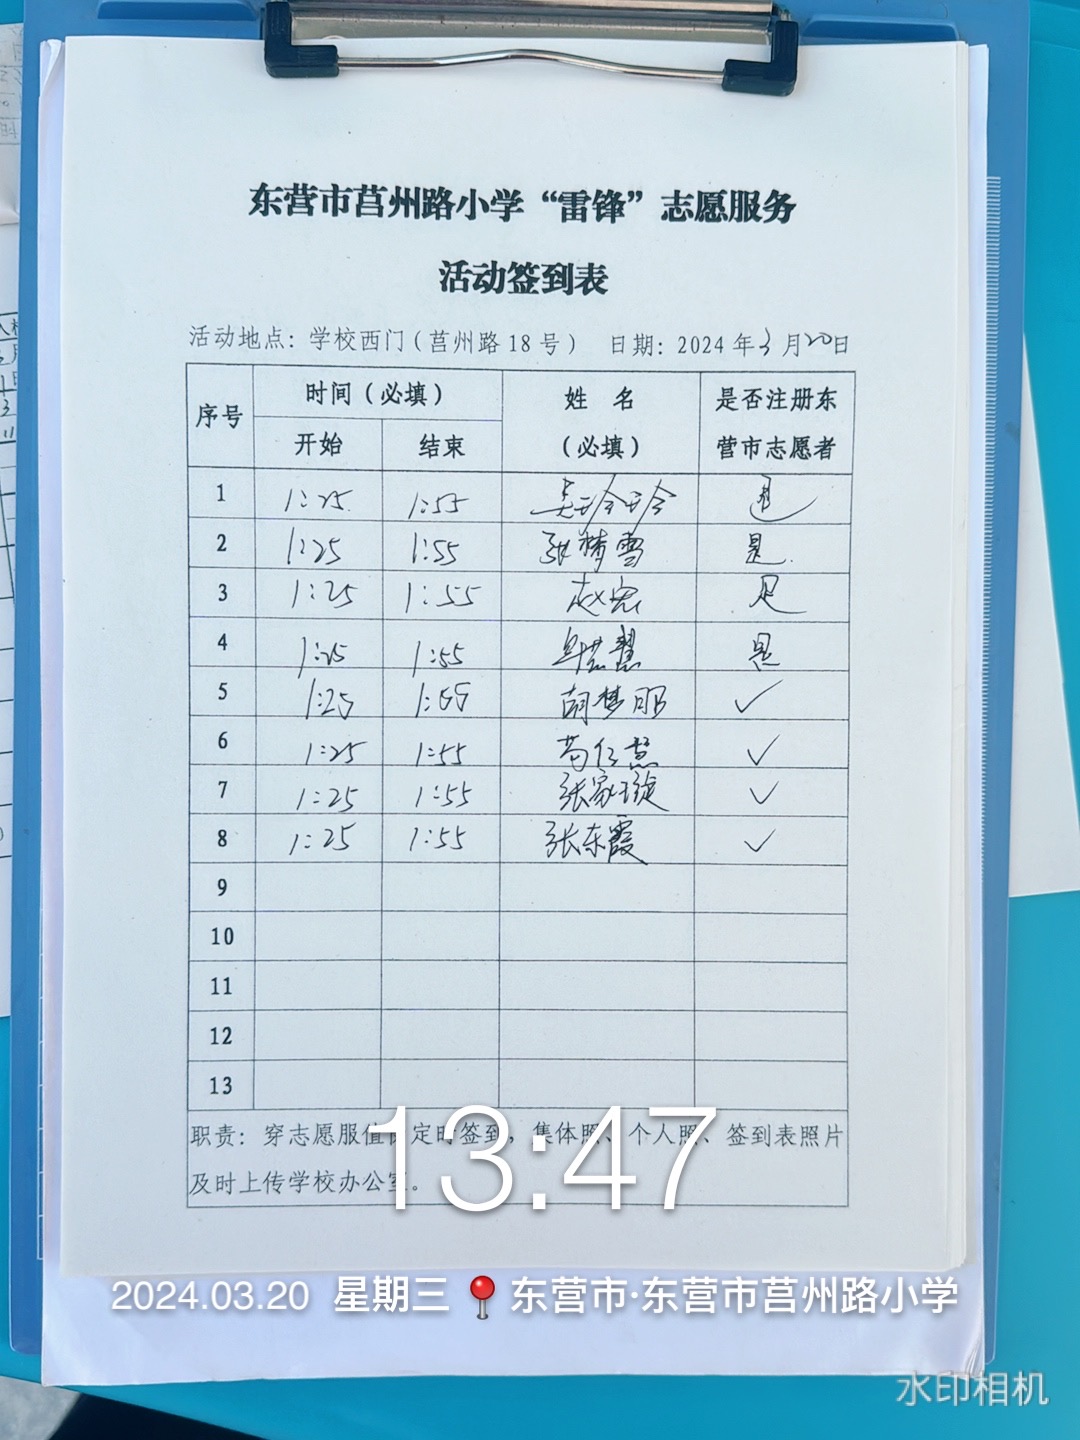 东营市莒州路小学“雷锋”志愿服务
活动签到表
活动地点：学校西门（莒州路18号） 日期：2024年3月20日
序号 时间（必填） 姓 名（必填） 是否注册东营市志愿者
开始 结束
1 1:25 1:55 吴玲玲 是
2 1:25 1:55 张梦雪 是
3 1:25 1:55 赵宏 是
4 1:25 1:55 是
5 1:25 1:55 胡梦 ✓
6 1:25 1:55 ✓
7 1:25 1:55 张家璇 ✓
8 1:25 1:55 张东霞 ✓
9
10
11
12
13
职责：穿志愿服值 定时签到，集体照、个人照、签到表照片
及时上传学校办公室。
13:47
2024.03.20 星期三 东营市·东营市莒州路小学
水印相机